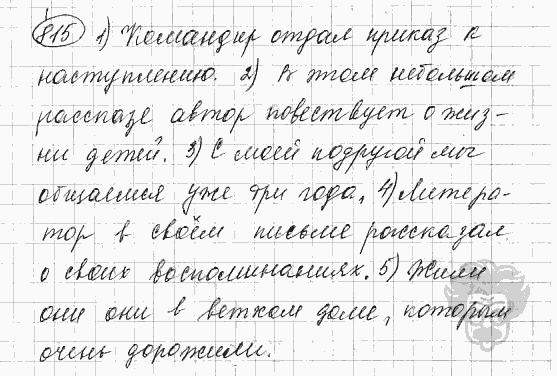 815 1) Командир отдал приказ к
наступлению. 2) В этом небольшом
рассказе автор повествует о жиз-
ни детей. 3) С моей подругой мы
общаемся уже три года. 4) Литера-
тор в своём письме рассказал
о своих воспоминаниях. 5) Жили
они они в ветхом доме, которым
очень дорожили.